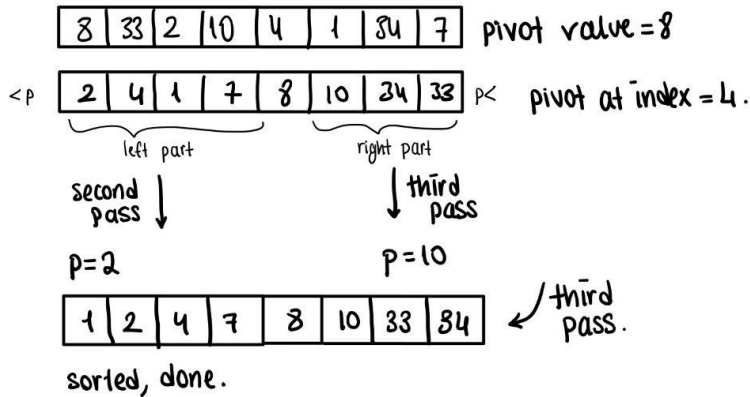 8 33 2 10 4 1 34 7 pivot value = 8
<p 2 4 1 7 8 10 34 33 p< pivot at index = 4.
left part right part
second pass third pass
p=2 p=10
1 2 4 7 8 10 33 34 third pass.
sorted, done.